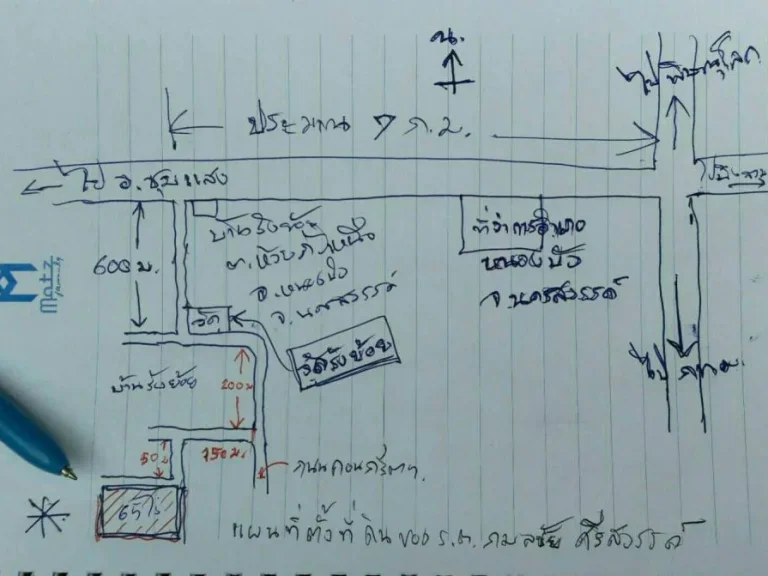 น.
ไป พิษณุโลก
ประมาณ 7 ก.ม.
ไป อ.ชุมแสง
600 ม.
บ้านรังย้อย
อ.หนองบัว
จ.นครสวรรค์
ที่ว่าการอำเภอ
หนองบัว
จ.นครสวรรค์
วัด
วัดรังย้อย
ไป กทม.
Matz
บ้านรังย้อย
200 ม
50 ม.
150 ม.
ถนนคอนกรีต
65 ไร่
แผนที่ตั้งที่ดินของ ร.ต. กมลชัย ศรีสวรรค์